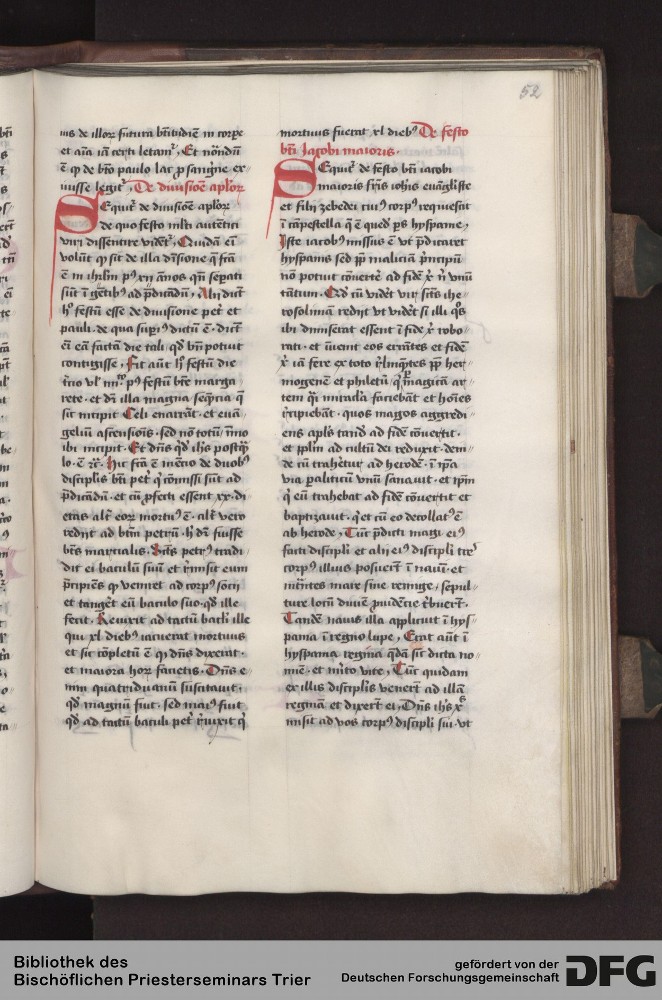 52
uis de illoꝝ futura btitudīe in corpe
et aīa iā certi letamꝰ. Et nōndū
ē ꝙ de bt̄o paulo lac ꝓ sangīne ex-
iuisse legitᷣ. De diuisiōe aplōꝝ
Sequitᷣ de diuisiōe aplōꝝ
de quo festo ml̄ti autētici
viri dissentire vident̄. Quidā eī
volūt ꝙ sit de illa diuisiōe q̄ fc̄a
ē in ihrlm̄ pꝰ xii ānos. qn̄ sepati
sūt ī gētibꝰ ad p̄dicādū. Alii dicūt
hꝰ festū esse de diuisione pet̄ et
pauli. de qua supiꝰ dictū ē. dicūt
eī eā factā die tali. qd̄ bn̄ potuit
contigisse. Fit aūt hꝰ festū die
t̄cio vl̓ iiii pꝰ festū bt̄e marga-
rete. et dr̄ illa magna seq̄ntia q̄
sic incipit Celi enarrāt. et euā-
geliū ascensiōis. sed nō totū īmo
ibi incipit. Et dn̄s qd̓ ihs̄ postq̄
lo. ē ꝛc̄. Hic fc̄a ē mēcio de duobꝰ
discīplis bt̄i pet̄ q̄ cōmissi sūt ad
p̄dicādū. et cū ꝓfecti essent xx. di
etas alt̄ eoꝝ mortuꝰ ē. alt̄ vero
redijt ad bt̄m petrū. hꝰ dr̄ fuisse
bt̄s marcialis. Sc̄s petrꝰ tradi-
dit ei baculū suū et rūnsit eum
p̄cipiēs ꝙ veniret ad corpꝰ socij
et tanget̄ eū baculo suo. qd̓ ille
fecit. Reuixit ad tactū bacl̓i ille
qui xl diebꝰ iacuerat mortuus
et sic cōpletū ē ꝙ dn̄s dixerat.
et maiora hoꝝ facietis. Dn̄s e-
nim quatriduanū suscitauit.
qd̓ magnū fuit. sed maiꝰ fuit
qd̓ ad tactū baculi pet̄ reuixit q̄
mortuus fuerat xl diebꝰ De festo
bt̄i Jacobi maioris.
Sequitᷣ de festo bt̄i iacobi
maioris frīs ioh̄is euāgliste
et filij zebedei cuiꝰ corpꝰ requiescit
ī cāpestella q̄ ē quedᷓ ps̄ hyspanie.
Iste iacobꝰ missus ē vt p̄dicaret
hyspanis sed ꝓp̄ maliciā p̄ncipū
nō potuit cōuert̄e ad fidē xᷣ n̄ vnū
tātum. Qd̄ cū vidēt vir sct̄s ihe-
rosolimā redijt vt videret si illi q̄s
ibi dimiserat essent ī fide xᷣ robo-
rati. et īuenit eos errātes et fidē
xᷣ iā fere ex toto r̄liquētes ꝓp̄ her-
mogenē et philetū. q̄ ꝑ magicā ar-
tem q̄i miracl̓a faciebāt et hoīes
decipiebāt. quos magos aggredi-
ens apl̓s tandē ad fidē cōuertit.
et ipsū ad cultū dei reduxit. dein-
de cū trahetᷣ ad herodē. ī ip̄a
via paliticū vnū sanauit. et ip̄m
q̄ eū trahebat ad fidē cōuertit et
baptizauit. q̄ et cū eo decollatꝰ ē
ab herode. Tūc p̄dicti magi eiꝰ
facti discipl̓i et alij eiꝰ discipl̓i
corpꝰ illius posuerūt ī nauī. et
mīttētes mare sine remige. sepul-
ture locū diuīe ꝓuidētie
Tandē nauis illa applicuit ī hys-
pania ī regno lupe. Erat aūt ī
hyspania regina q̄dā sic dicta no-
mīe. et mīto vite. Tūc quidam
ex illis discipl̓is venerūt ad illā
reginā et dixerūt ei. Dn̄s ihs̄ xᷣs
misit ad vos corpꝰ discipl̓i sui. vt
Bibliothek des
Bischöflichen Priesterseminars Trier
gefördert von der
Deutschen Forschungsgemeinschaft
DFG